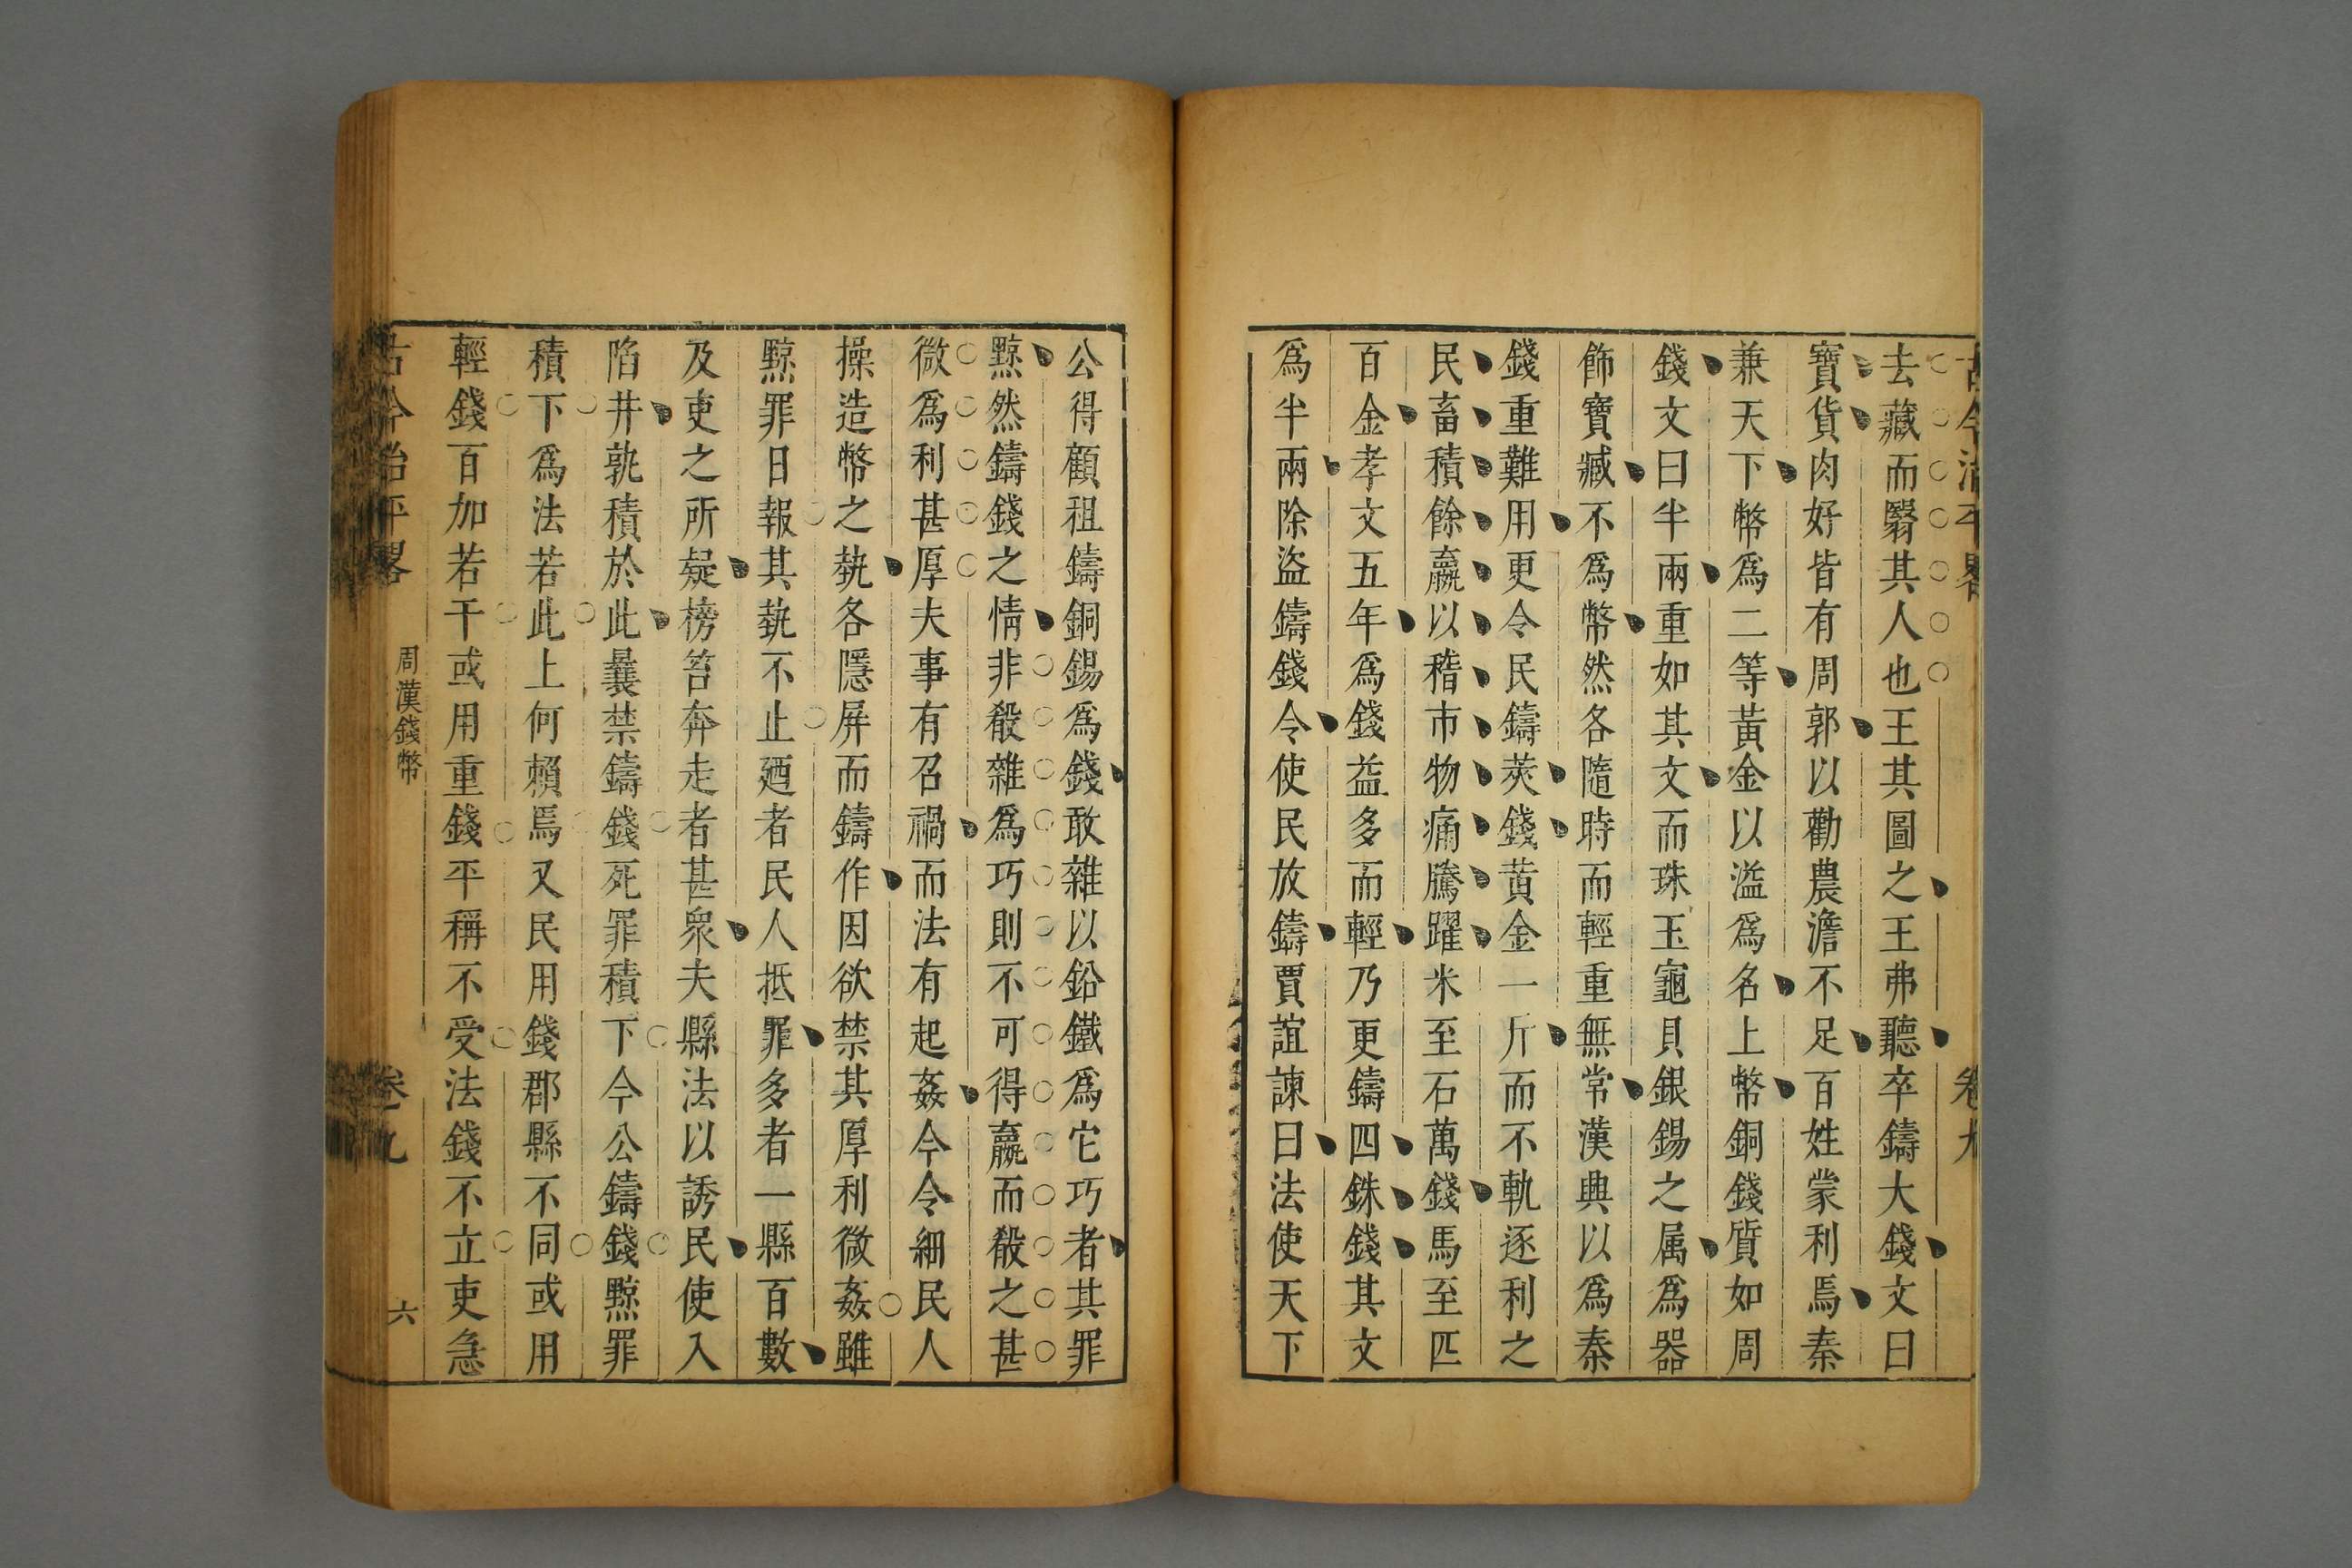 古今治平畧
卷九
去藏而翳其人也王其圖之王弗聽卒鑄大錢文曰
寶貨肉好皆有周郭以勸農澹不足百姓蒙利焉秦
兼天下幣爲二等黃金以溢爲名上幣銅錢質如周
錢文曰半兩重如其文而珠玉龜貝銀錫之属爲器
飾寶臧不爲幣然各隨時而輕重無常漢興以爲秦
錢重難用更令民鑄莢錢黄金一斤而不軌逐利之
民畜積餘贏以稽市物痛騰躍米至石萬錢馬至匹
百金孝文五年爲錢益多而輕乃更鑄四銖錢其文
爲半兩除盜鑄錢令使民放鑄賈誼諫曰法使天下
公得顧租鑄銅錫爲錢敢雜以鉛鐵爲它巧者其罪
黥然鑄錢之情非殽雜爲巧則不可得贏而殽之甚
微爲利甚厚夫事有召禍而法有起姦今令細民人
操造幣之埶各隱屏而鑄作因欲禁其厚利微姦雖
黥罪日報其埶不止廼者民人抵罪多者一縣百數
及吏之所疑榜笞奔走者甚衆夫縣法以誘民使入
陷井孰積於此曩禁鑄錢死罪積下今公鑄錢黥罪
積下爲法若此上何賴焉又民用錢郡縣不同或用
輕錢百加若干或用重錢平稱不受法錢不立吏急
古今治平畧
周漢錢幣
卷九
六